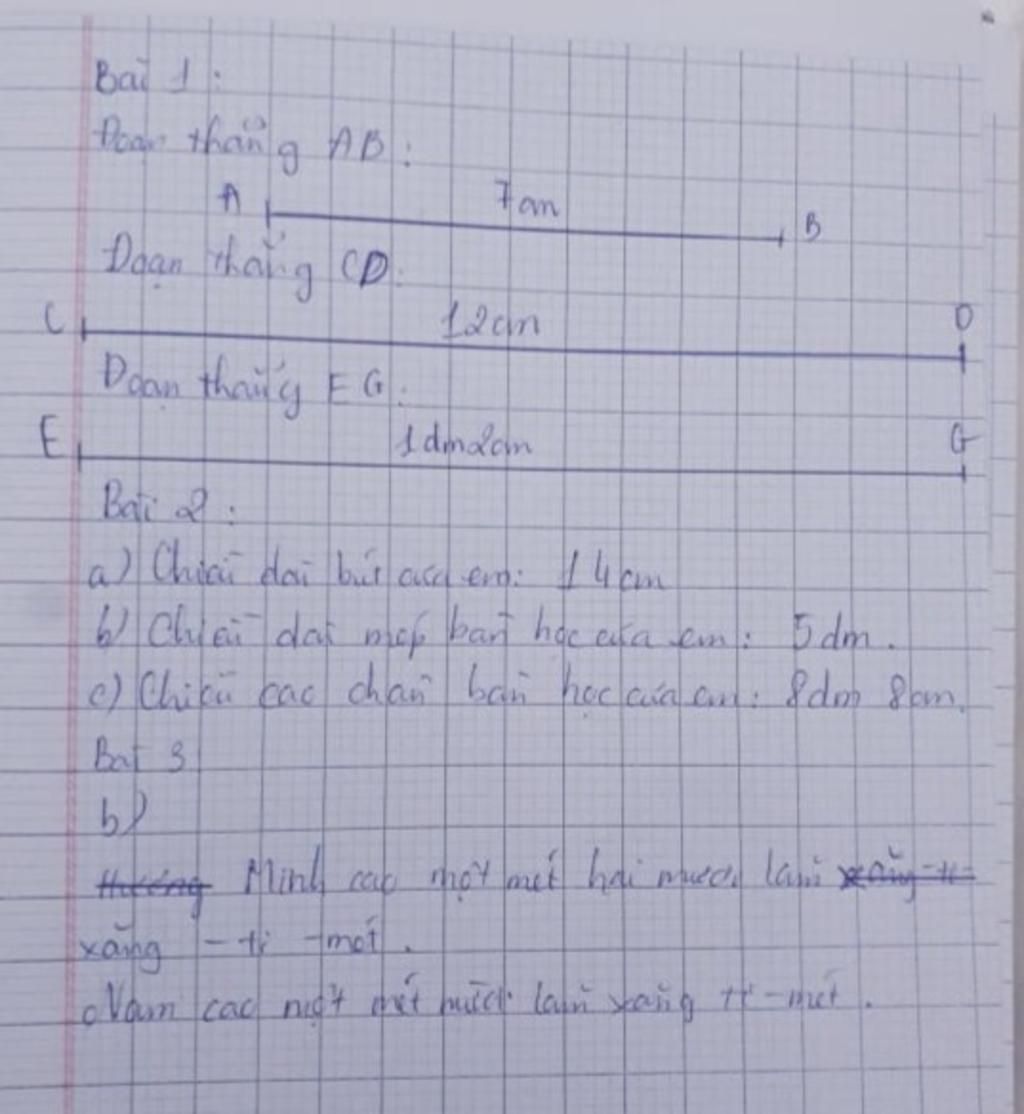 Bài 1 :
Đoạn thẳng AB :
A 7cm B
Đoạn thẳng CD :
C 12cm D
Đoạn thẳng EG :
E 1dm2cm G
Bài 2 :
a) Chiều dài bút của em: 14cm
b) Chiều dài mép bàn học của em : 5dm.
c) Chiều cao chân bàn học của em : 8dm 8cm.
Bài 3
b)
Minh cao một mét hai mươi lăm
xăng - ti - mét .
Nam cao một mét mười lăm xăng ti - mét .